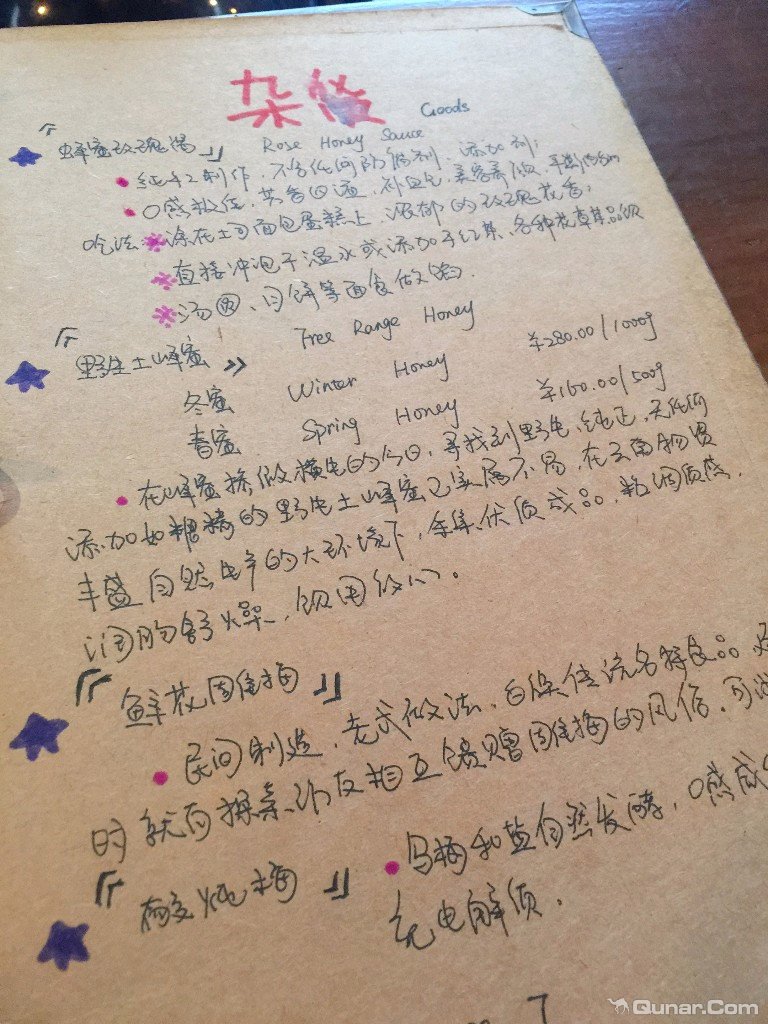 杂 Goods
「蜂蜜玫瑰酱」 Rose Honey Sauce
纯手工制作,不含任何防腐剂、添加剂;
口感极佳,芳香四溢,补血气,美容养颜,
吃法 涂在土司面包蛋糕上 浓郁的玫瑰花香;
直接冲泡于温水或添加于红茶、各种花草茶品饮
汤圆、月饼等面食做馅.
「野生土峰蜜」 Free Range Honey
冬蜜 Winter Honey ¥280.00/1000g
春蜜 Spring Honey ¥160.00/500g
在峰蜜掺假横生的今日,寻找到野生、纯正、无任何
添加如糖精的野生土峰蜜已实属不易,在云南物资
丰盛自然生羊的大环境下,采集优质成品,粘稠质感,
润肺舒燥,饮用放心。
「鲜花雕梅」
民间制造,老式做法,白族传统名特食品
时就有探亲访友相互馈赠雕梅的风俗,可
「酸炖梅」 乌梅和盐自然发酵,口感